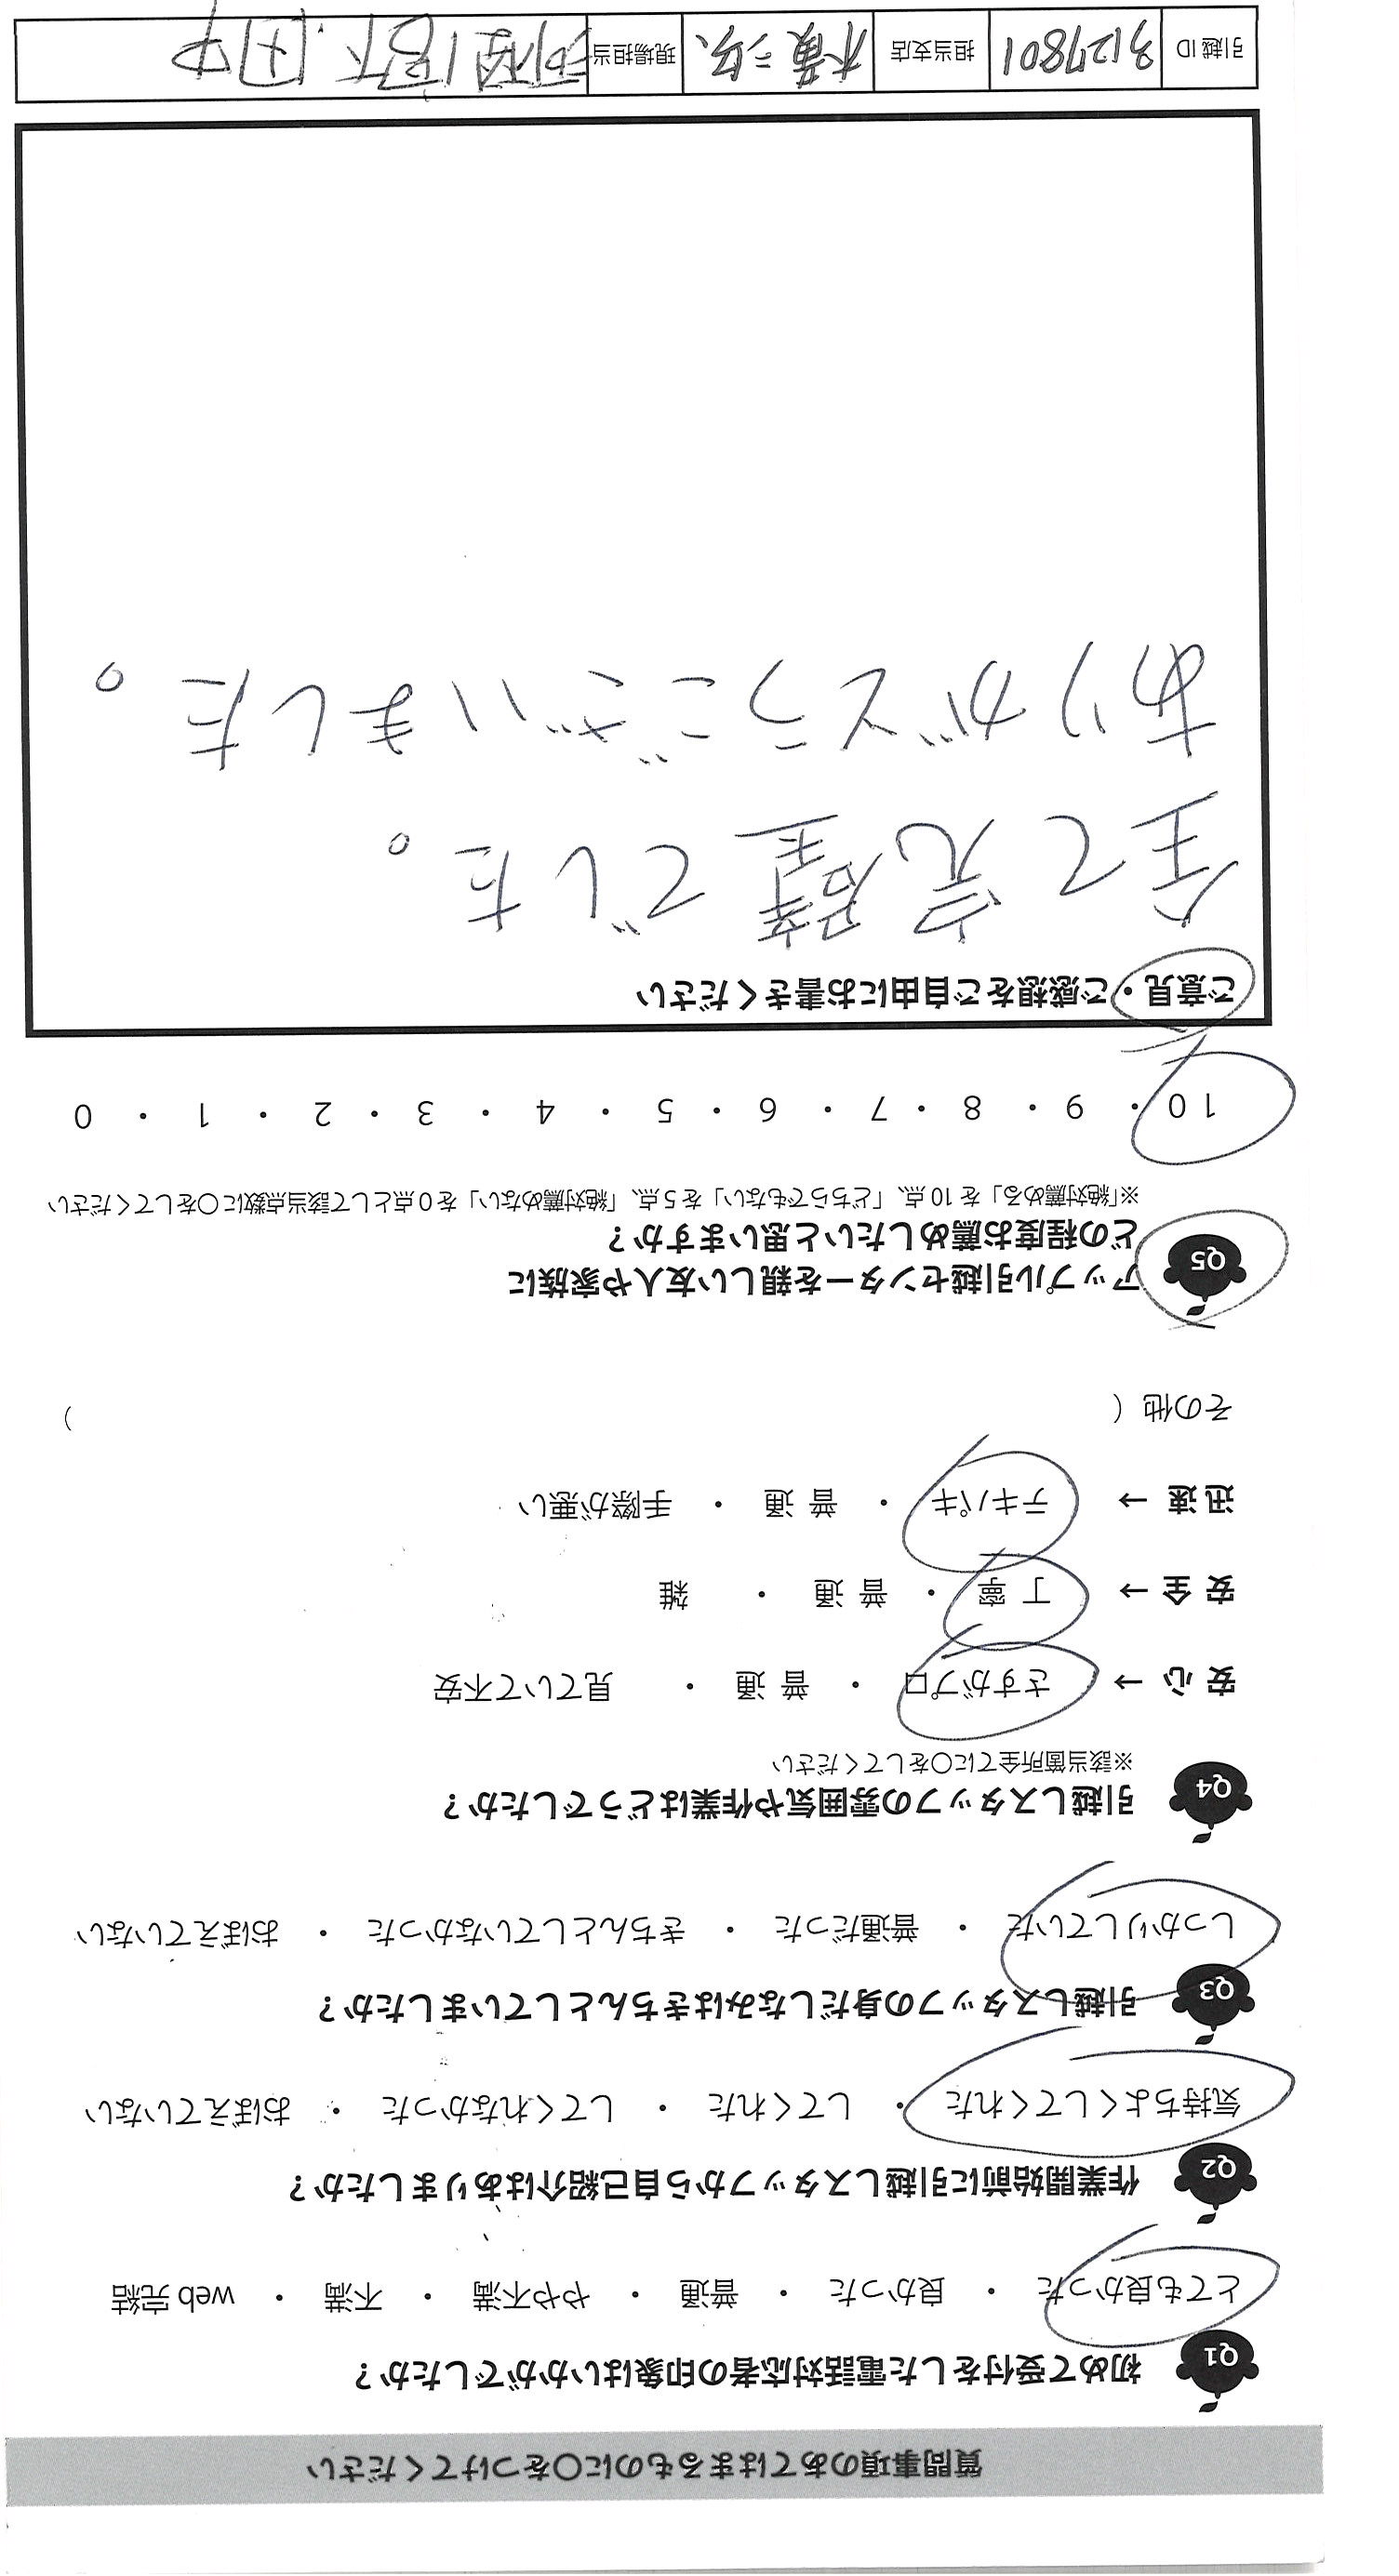 質問事項のあてはまるものに〇をつけてください
Q1 初めて受付をした電話対応者の印象はいかがでしたか？
とても良かった ・ 良かった ・ 普通 ・ やや不満 ・ 不満 ・ web 完結
Q2 作業開始前に引越しスタッフから自己紹介はありましたか？
気持ちよくしてくれた ・ してくれた ・ してくれなかった ・ おぼえていない
Q3 引越しスタッフの身だしなみはきちんとしていましたか？
しっかりしていた ・ 普通だった ・ きちんとしていなかった ・ おぼえていない
Q4 引越しスタッフの雰囲気や作業はどうでしたか？
※該当箇所全てに〇をしてください
安 心 → さすがプロ ・ 普 通 ・ 見ていて不安
安 全 → 丁 寧 ・ 普 通 ・ 雑
迅 速 → テキパキ ・ 普 通 ・ 手際が悪い
その他（ ）
Q5 アップル引越センターを親しい友人や家族に
どの程度お薦めしたいと思いますか？
※「絶対薦める」を 10 点、「どちらでもない」を 5 点、「絶対薦めない」を 0 点として該当点数に〇をしてください
10 ・ 9 ・ 8 ・ 7 ・ 6 ・ 5 ・ 4 ・ 3 ・ 2 ・ 1 ・ 0
ご意見・ご感想をご自由にお書きください
全て完璧でした。
ありがとうございました。
引越 ID 3127801 担当支店 現場担当 宮下 田中